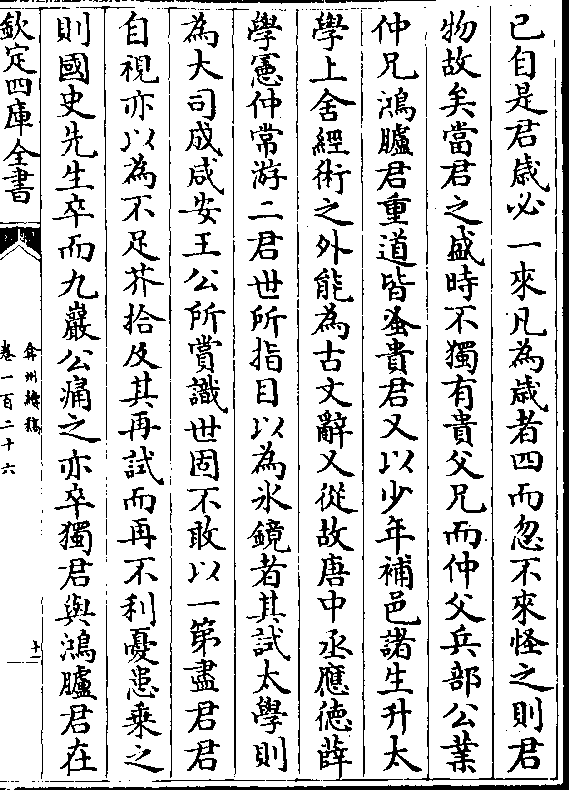 已自是君歳必一來凡為歳者四而忽不來怪之則君
物故矣當君之盛時不獨有貴父兄而仲父兵部公業
仲兄鴻臚君重道皆蚤貴君又以少年補邑諸生升太
學上舍經術之外能為古文辭又從故唐中丞應徳薛
學憲仲常游二君世所指目以為氷鏡者其試太學則
為大司成咸安王公所賞識世固不敢以一第盡君君
自視亦以為不足芥拾及其再試而再不利憂患乗之
則國史先生卒而九巖公痛之亦卒獨君與鴻臚君在
欽定四庫全書
弇州續稿
卷一百二十六
十一